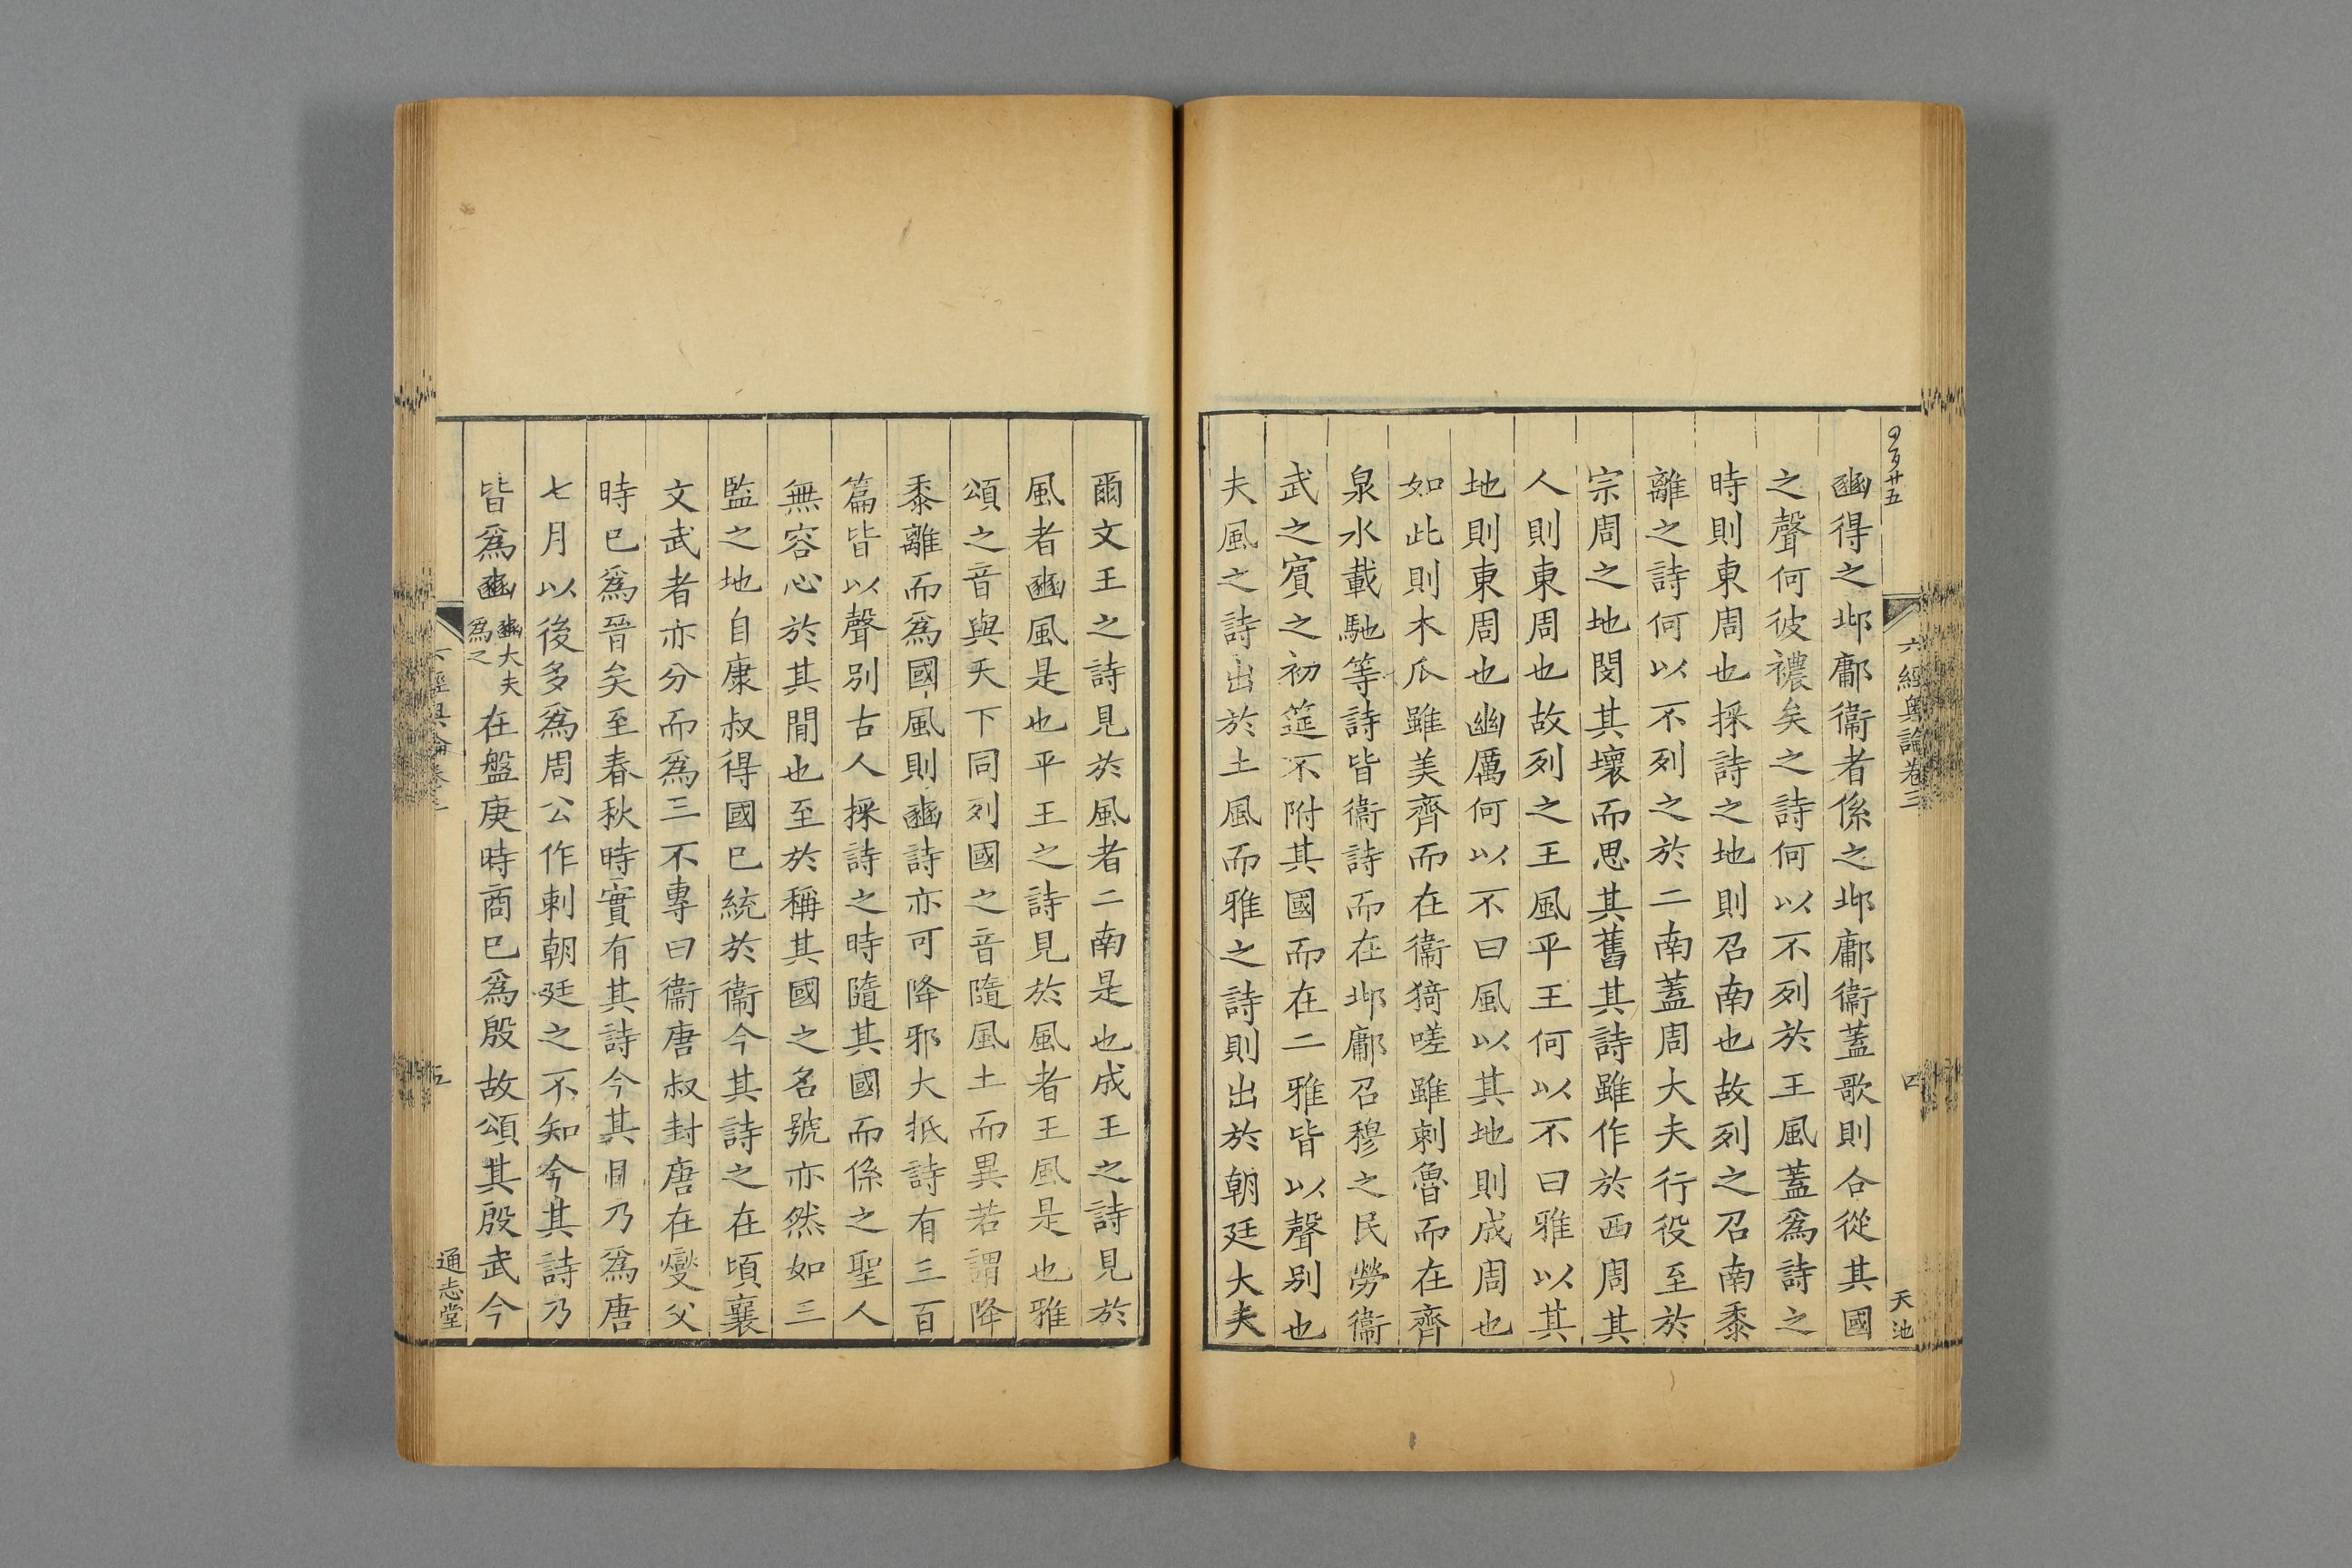 六經奧論卷三
四
天池
豳得之邶鄘衞者係之邶鄘衞蓋歌則合從其國
之聲何彼襛矣之詩何以不列於王風蓋爲詩之
時則東周也採詩之地則召南也故列之召南黍
離之詩何以不列之於二南蓋周大夫行役至於
宗周之地閔其壞而思其舊其詩雖作於西周其
人則東周也故列之王風平王何以不曰雅以其
地則東周也幽厲何以不曰風以其地則成周也
如此則木瓜雖美齊而在衞猗嗟雖刺魯而在齊
泉水載馳等詩皆衞詩而在邶鄘召穆之民勞衞
武之賓之初筵不附其國而在二雅皆以聲别也
夫風之詩出於土風而雅之詩則出於朝廷大夫
爾文王之詩見於風者二南是也成王之詩見於
風者豳風是也平王之詩見於風者王風是也雅
頌之音與天下同列國之音隨風土而異若謂降
黍離而爲國風則豳詩亦可降邪大抵詩有三百
篇皆以聲别古人採詩之時隨其國而係之聖人
無容心於其閒也至於稱其國之名號亦然如三
監之地自康叔得國已統於衞今其詩之在頃襄
文武者亦分而爲三不專曰衞唐叔封唐在燮父
時已爲晉矣至春秋時實有其詩今其目乃爲唐
七月以後多爲周公作刺朝廷之不知今其詩乃
皆爲豳豳大夫爲之在盤庚時商已爲殷故頌其殷武今
五
通志堂